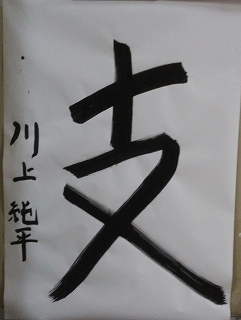 支
川上 純平